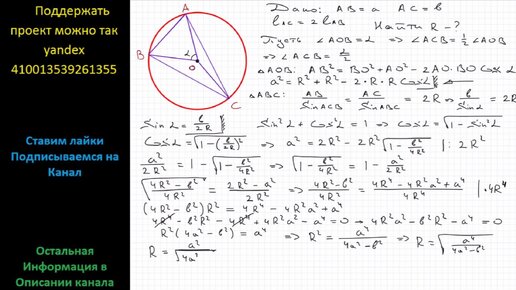 Поддержать
проект можно так
yandex
410013539261355
Ставим лайки
Подписываемся на
Канал
Остальная
Информация в
Описании канала
A
B
C
O
α
Дано: AB = a AC = b
◡AC = 2 ◡AB Найти R - ?
Пусть ∠AOB = α ⇒ ∠ACB = 1/2 ∠AOB
⇒ ∠ACB = α/2
△AOB: AB² = BO² + AO² - 2AO·BO Cos α
a² = R² + R² - 2·R·R Cos α
△ABC: AB/Sin ACB = AC/Sin ABC = 2R ⇒ b/Sin α = 2R
Sin α = b/2R Sin² α + Cos² α = 1 ⇒ Cos α = √(1 - Sin² α)
Cos α = √(1 - (b/2R)²) ⇒ a² = 2R² - 2R² √(1 - b²/4R²) | : 2R²
a²/2R² = 1 - √(1 - b²/4R²) ⇒ √(1 - b²/4R²) = 1 - a²/2R²
√((4R² - b²)/4R²) = (2R² - a²)/2R² ⇒ (4R² - b²)/4R² = (4R⁴ - 4R²a² + a⁴)/4R⁴ | ·4R⁴
(4R² - b²)R² = 4R⁴ - 4R²a² + a⁴
4R⁴ - b²R² - 4R⁴ + 4R²a² - a⁴ = 0 ⇒ 4R²a² - b²R² - a⁴ = 0
R²(4a² - b²) = a⁴ ⇒ R² = a⁴/(4a² - b²) ⇒ R = √(a⁴/(4a² - b²))
R = a²/√(4a²